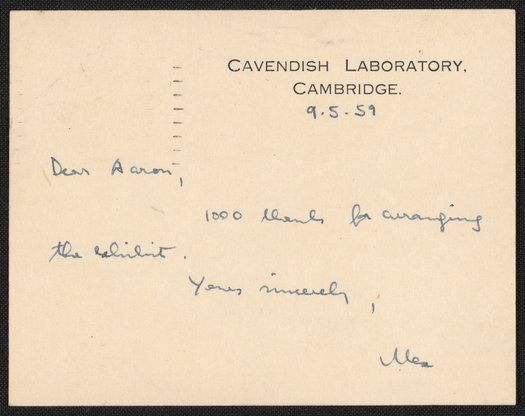 CAVENDISH LABORATORY,
CAMBRIDGE.
9.5.59
Dear Aaron,
1000 thanks for arranging
the exhibit.
Yours sincerely,
Max